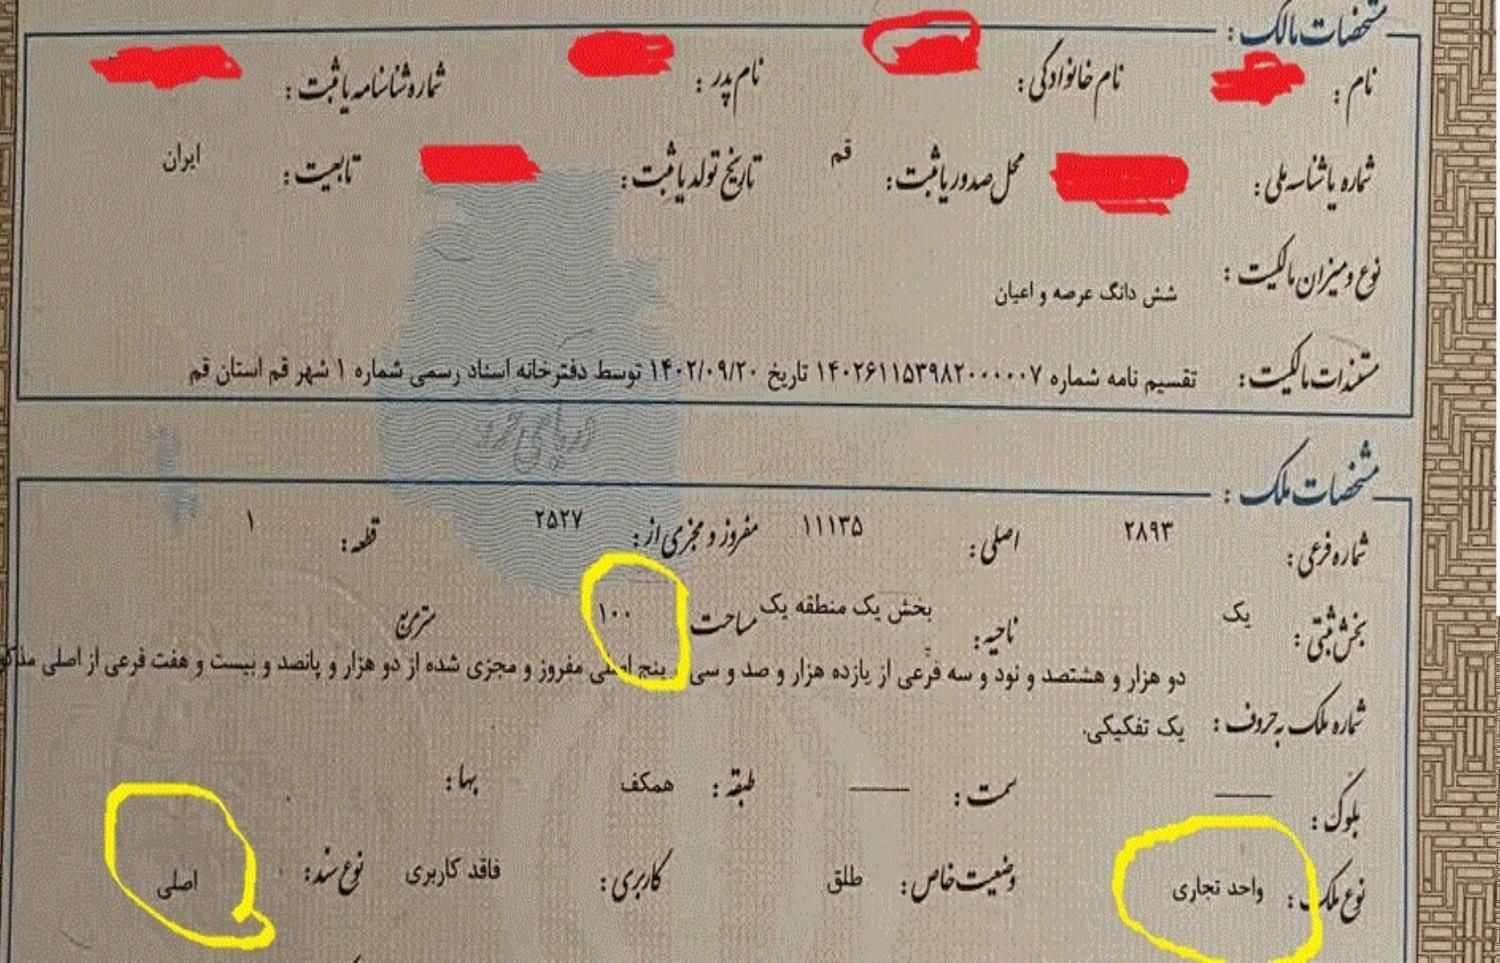 مشخصات مالک :
نام : نام خانوادگی : نام پدر : شماره شناسنامه یا ثبت :
شماره یا شناسه ملی : محل صدور یا ثبت : قم تاریخ تولد یا ثبت : تابعیت : ایران
نوع و میزان مالکیت : شش دانگ عرصه و اعیان
مستندات مالکیت : تقسیم نامه شماره ۱۴۰۲۶۱۱۵۳۹۸۲۰۰۰۰۰۷ تاریخ ۱۴۰۲/۰۹/۲۰ توسط دفترخانه اسناد رسمی شماره ۱ شهر قم استان قم
دریای خزر
مشخصات ملک :
شماره فرعی : ۲۸۹۳ اصلی : ۱۱۱۳۵ مفروز و مجزی از : ۲۵۲۷ قطعه : ۱
بخش ثبتی : یک ناحیه : بخش یک منطقه یک مساحت ۱۰۰ مترمربع
دو هزار و هشتصد و نود و سه فرعی از یازده هزار و صد و سی و پنج اصلی مفروز و مجزی شده از دو هزار و پانصد و بیست و هفت فرعی از اصلی
شماره ملک به حروف : یک تفکیکی.
بلوک : — سمت : — طبقه : همکف بها :
نوع ملک : واحد تجاری وضعیت خاص : طلق کاربری : فاقد کاربری نوع سند : اصلی